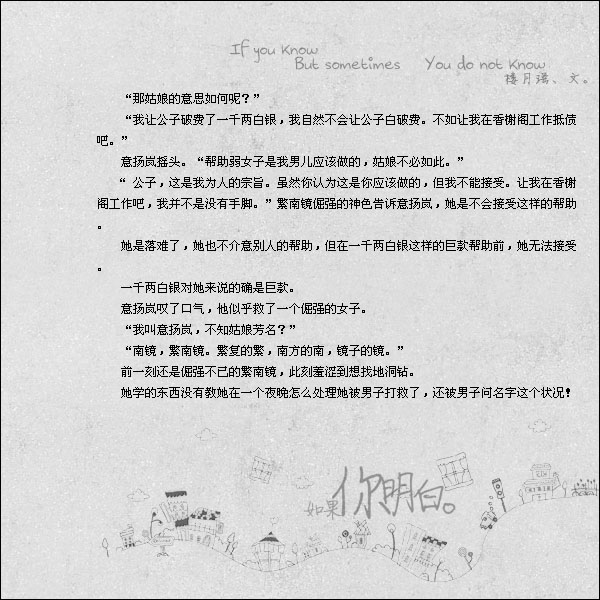 If you Know
But sometimes You do not Know
楼月瑶、文。
“那姑娘的意思如何呢？”
“我让公子破费了一千两白银，我自然不会让公子白破费。不如让我在香榭阁工作抵债
吧。”
意扬岚摇头。“帮助弱女子是我男儿应该做的，姑娘不必如此。”
“ 公子，这是我为人的宗旨。虽然你认为这是你应该做的，但我不能接受。让我在香榭
阁工作吧，我并不是没有手脚。”繁南镜倔强的神色告诉意扬岚，她是不会接受这样的帮助
。
她是落难了，她也不介意别人的帮助，但在一千两白银这样的巨款帮助前，她无法接受
。
一千两白银对她来说的确是巨款。
意扬岚叹了口气，他似乎救了一个倔强的女子。
“我叫意扬岚，不知姑娘芳名？”
“南镜，繁南镜。繁复的繁，南方的南，镜子的镜。”
前一刻还是倔强不已的繁南镜，此刻羞涩到想找地洞钻。
她学的东西没有教她在一个夜晚怎么处理她被男子打救了，还被男子问名字这个状况！
如果你明白。